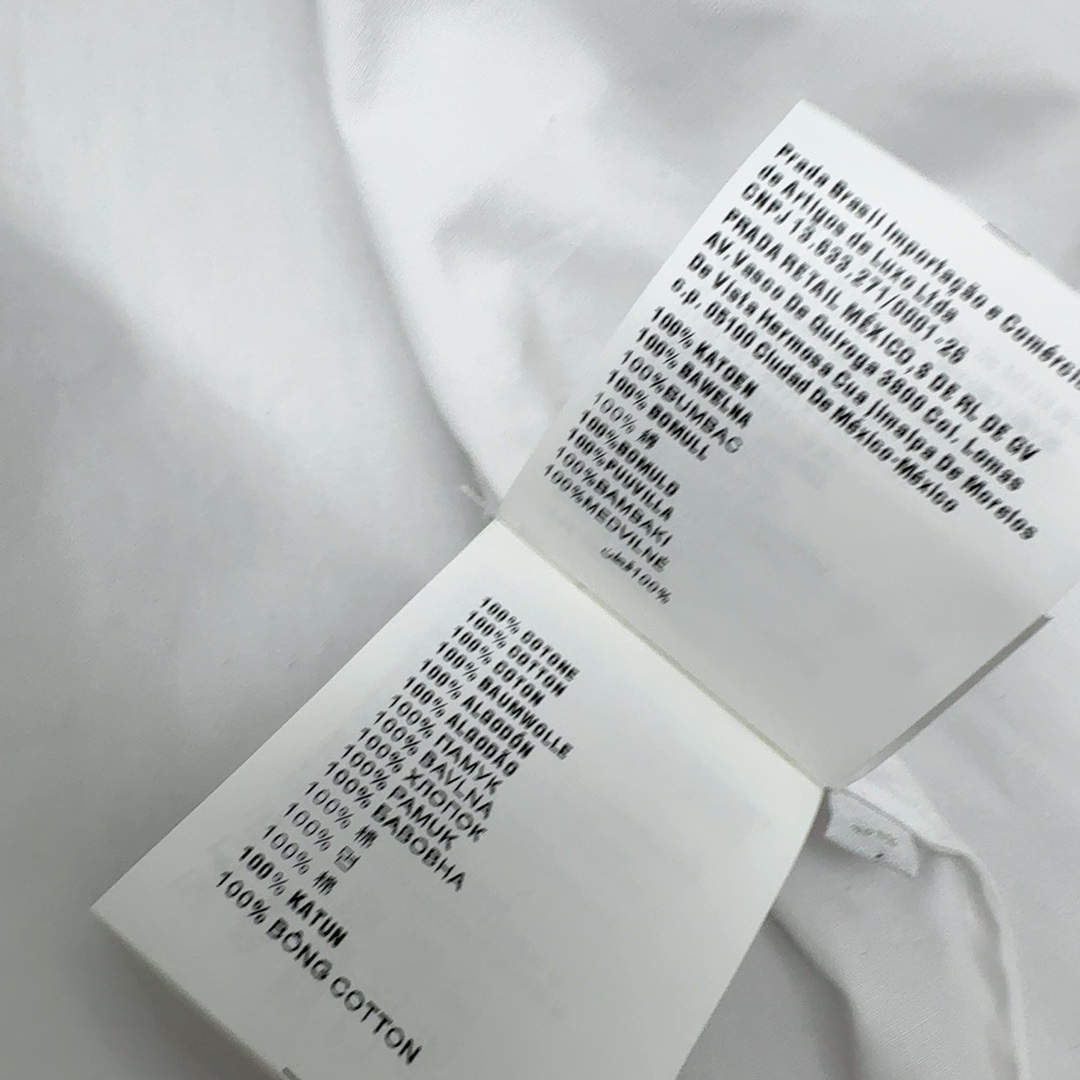 Prada Brasil Importação e Comércio
de Artigos de Luxo Ltda
CNPJ 13.633.271/0001-26
PRADA RETAIL MÉXICO,S DE RL DE CV
AV. Vasco De Quiroga 3800 Col. Lomas
De Vista Hermosa Cua jimalpa De Morelos
c.p. 05100 Ciudad De México-México
100% KATOEN
100% BAWELNA
100%BUMBAC
100% BOMULL
100% 棉
100%BOMULD
100%PUUVILLA
100%BAMBAKI
100%MEDVILNĖ
100%
100% COTONE
100% COTTON
100% COTON
100% BAUMWOLLE
100% ALGODÓN
100% ALGODÃO
100% ПАМУК
100% BAVLNA
100% ХЛОПОК
100% PAMUK
100% БАВОВНА
100% 棉
100% 면
100% 棉
100% KATUN
100% BÔNG COTTON